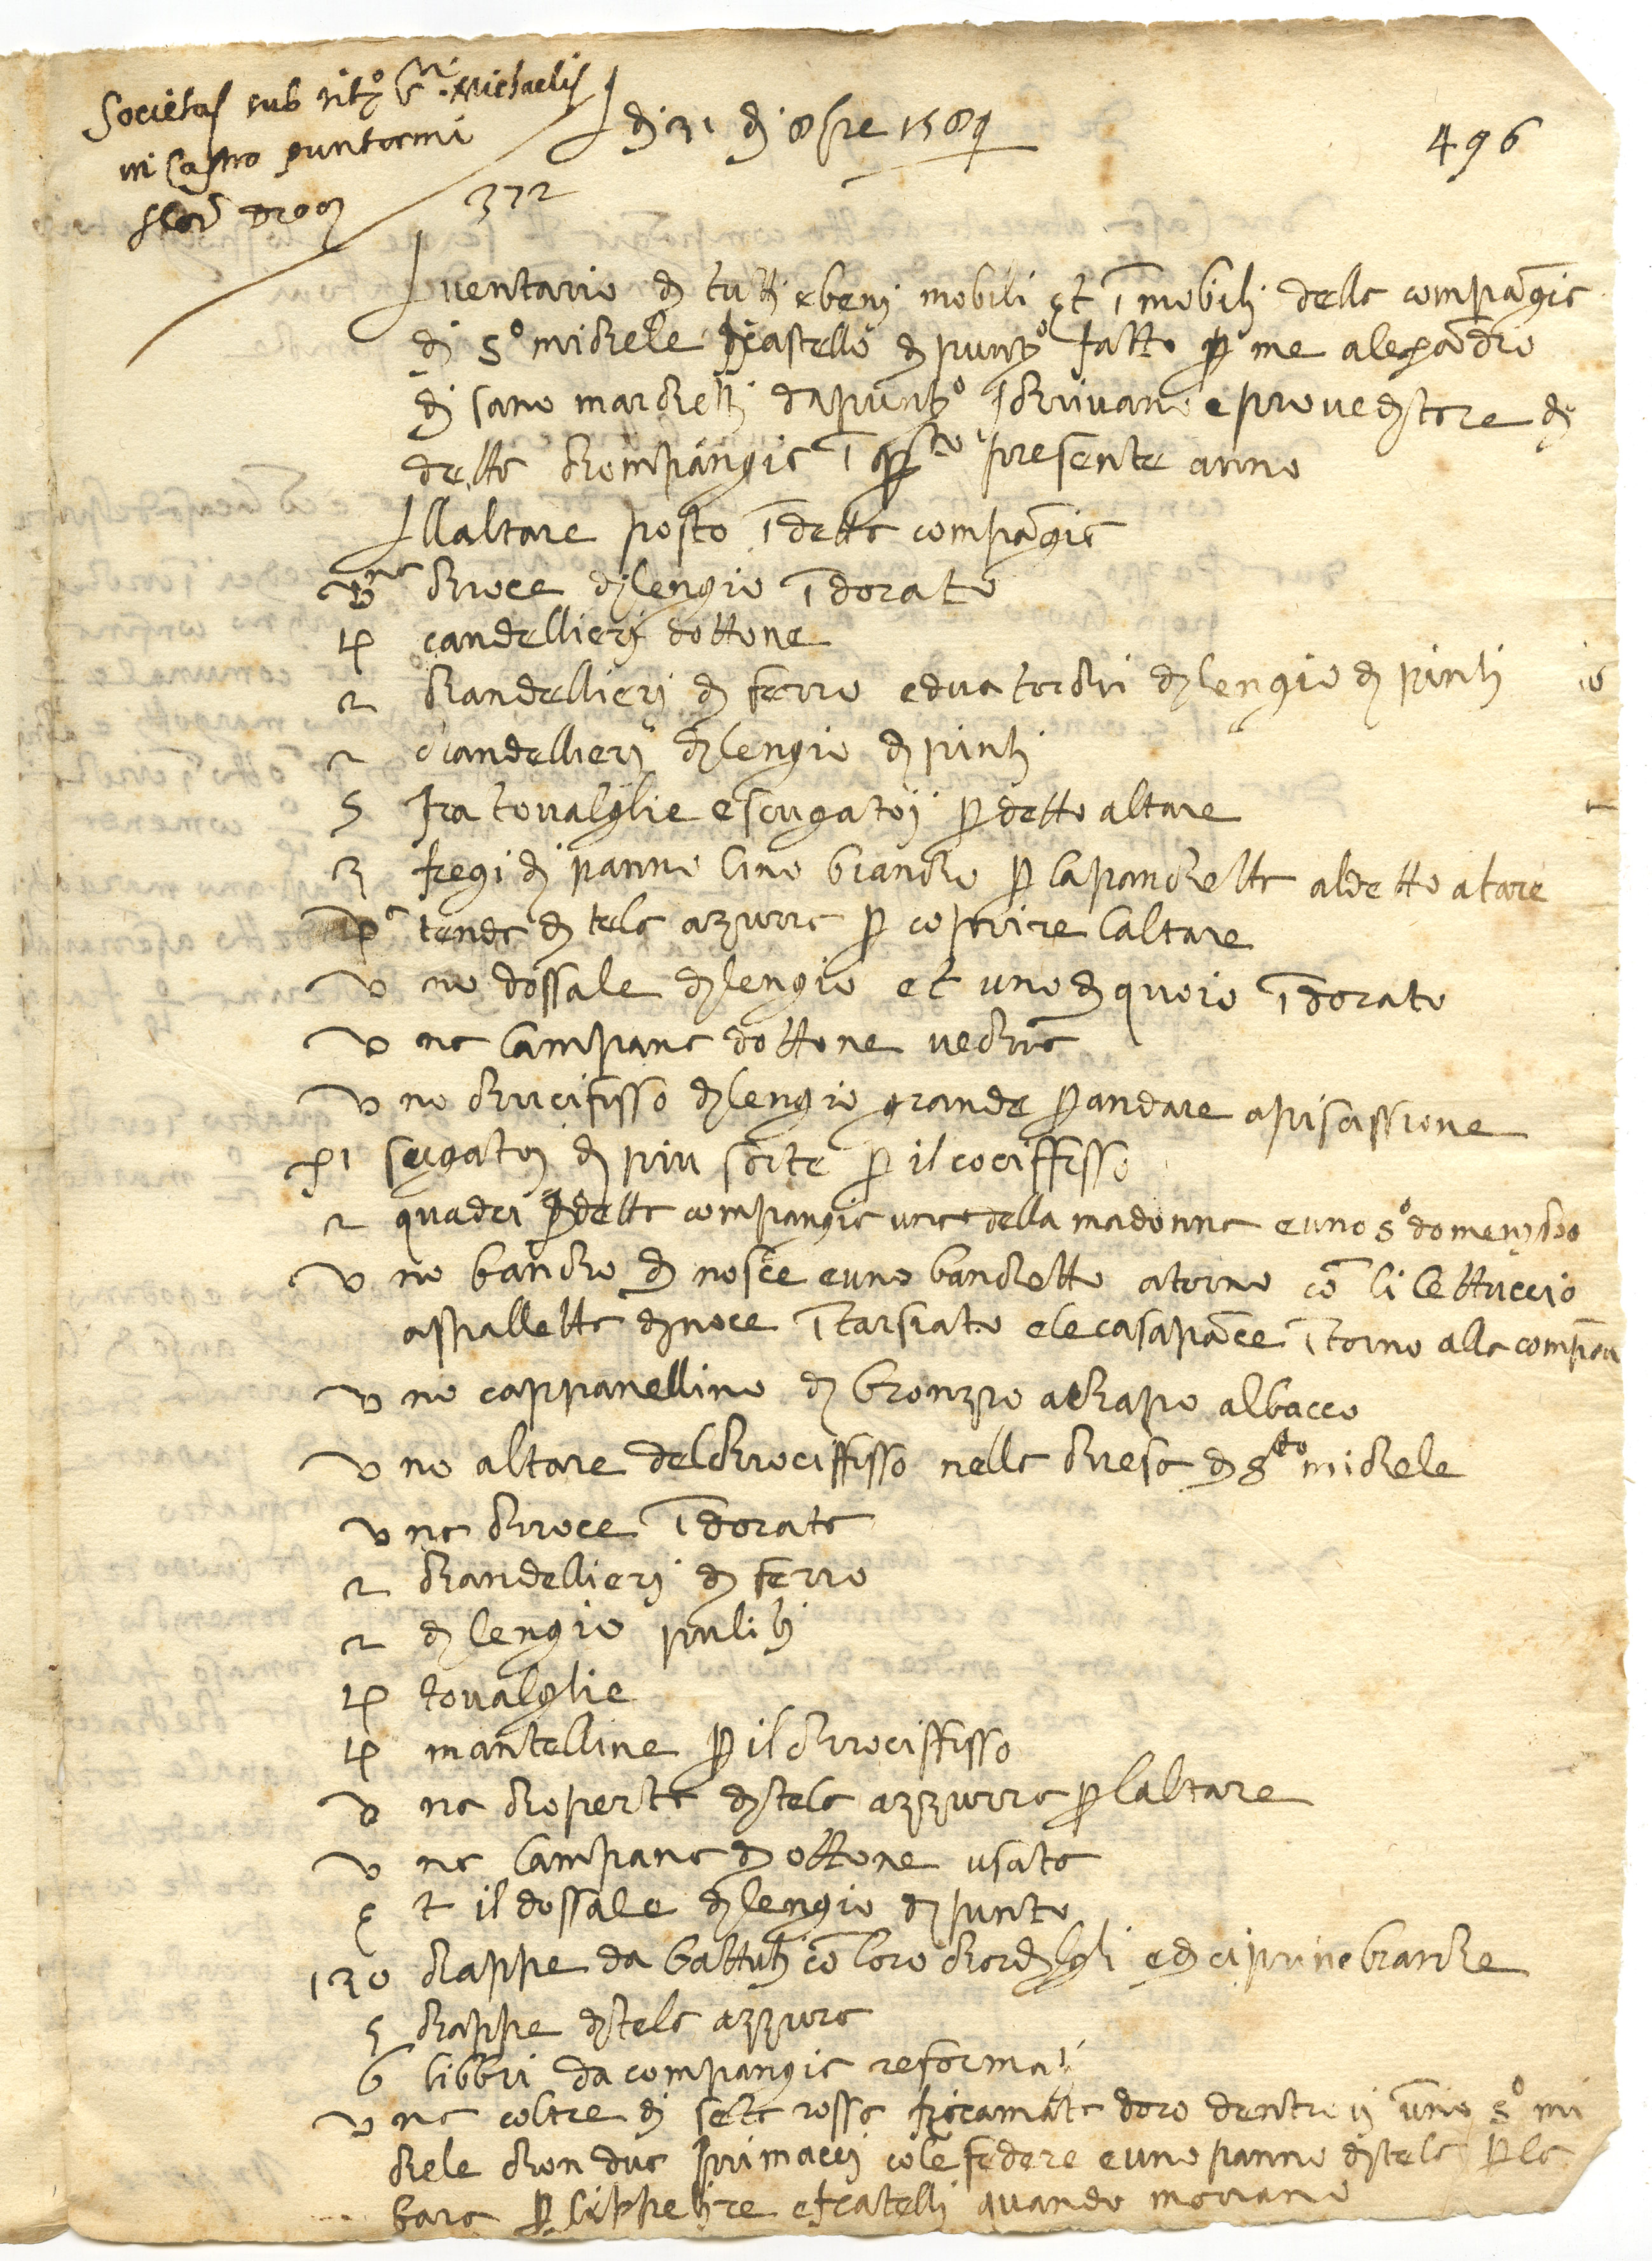 Societas sub tit.o S.ti Michaelis
in Castro puntormi
Flor.
372
di 31 di 8bre 1589
496
Inventario di tutti ebeni mobili et i mobili della compagnia
di s.o michele di castello di punt.o fatto p me alesādro
di sano marchetti da punt.o ischrivano e proveditore di
detta chompangia ī q.sto presente anno
Illaltare posto ī detta compāgia
una chroce di lengio īdorato
4 candellieri dottone
2 chandellieri di ferro e dua torchi di lengio di pinti
2 chandellieri di lengio di pinti
5 fra tovalglie e scugatoi p detto altare
3 fregi di panno lino biancho p la panchetta al detto atare
1a tenda di tela azurra p coprire laltare
uno dossale di lengio et uno di quoio īdorato
una lampana dottone vechia
uno chrucifisso di lengio grande p andare a pricissione
XI scugatoi di piu sorte p il cociffisso
2 quadri di detta compangia una della madonna e uno s.o domenicho
uno bancho di nosce e uno banchetto atorno cō li lettuccio
aspalletta di noce ītarsiato e le casapāce ītorno alla compā
uno cappanellino di bronzo achapo albacco
uno altare del chrociffisso nella chiesa di s.to michele
una chroce īdorata
2 chandellieri di ferro
2 di lengio puliti
4 tovalglie
4 mantelline p il chrociffisso
una choperta di tela azzurra p laltare
una lampana di ottone usata
et il dossale di lengio di punto
130 chappe da battuti cō loro chordigli e diciprine bianche
5 chappe di tela azzura
6 libbri da compangia reformati
una coltre di seta rossa richamata doro dentrovi uno s.o mi
chele chon dua primacci cole federe e uno panno di tela p la
bara p sippelire e fratelli quando morano